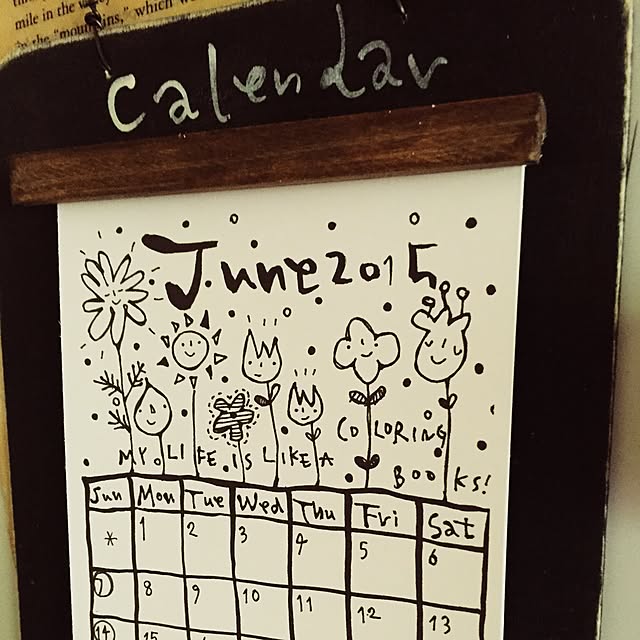 mile in the
the "mountains," which w
Calendar
June 2015
MY LIFE IS LIKE A
COLORING
BOOKS!
Sun Mon Tue Wed Thu Fri Sat
* 1 2 3 4 5 6
7 8 9 10 11 12 13
14 15